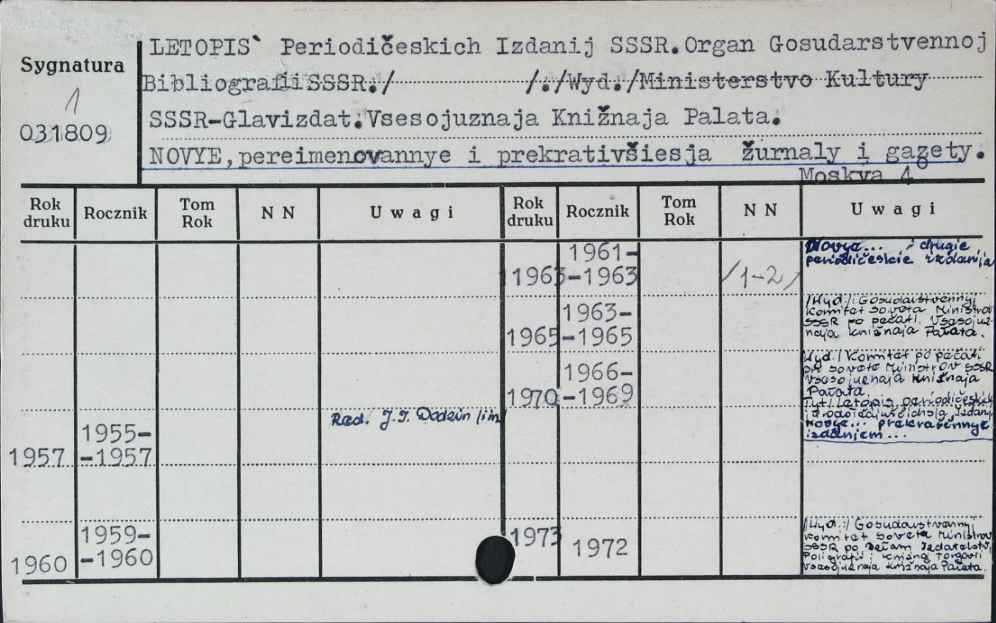 LETOPIS` Periodičeskich Izdanij SSSR.Organ Gosudarstvennoj
Sygnatura
Bibliografii SSSR./ /:/Wyd./Ministerstvo Kultury
1
031809
SSSR-Glavizdat.Vsesojuznaja Knižnaja Palata.
NOVYE,pereimenovannye i prekrativšiesja žurnaly i gazety.
Moskva 4°
Rok druku Rocznik Tom Rok N N Uwagi Rok druku Rocznik Tom Rok N N Uwagi
1961-
1963 -1963 /1-2/
Novye... i drugie
periodičeskie izdanija
1963-
1965 -1965
/Wyd./: Gosudarstvennyj
Komitet Soveta Ministrov
SSSR po pečati. Vsesojuz-
naja Knižnaja Palata.
1966-
1970 -1969
Wyd./ Komitet po pečati
pri Sovete Ministrov SSSR
Vsesojuznaja Knižnaja
Palata.
Tyt./ Letopis periodičeskich
i Izdanij
Novye... prekraščennye
izdaniem...
Red. J.I. /in/
1955-
1957 -1957
1959-
1960 -1960
1973 1972
/Wyd./ Gosudarstvennyj
Komitet Soveta Ministrov
SSSR po delam Izdatelstv,
Poligrafii i Knižnoj Torgovli
Vsesojuznaja Knižnaja Palata.